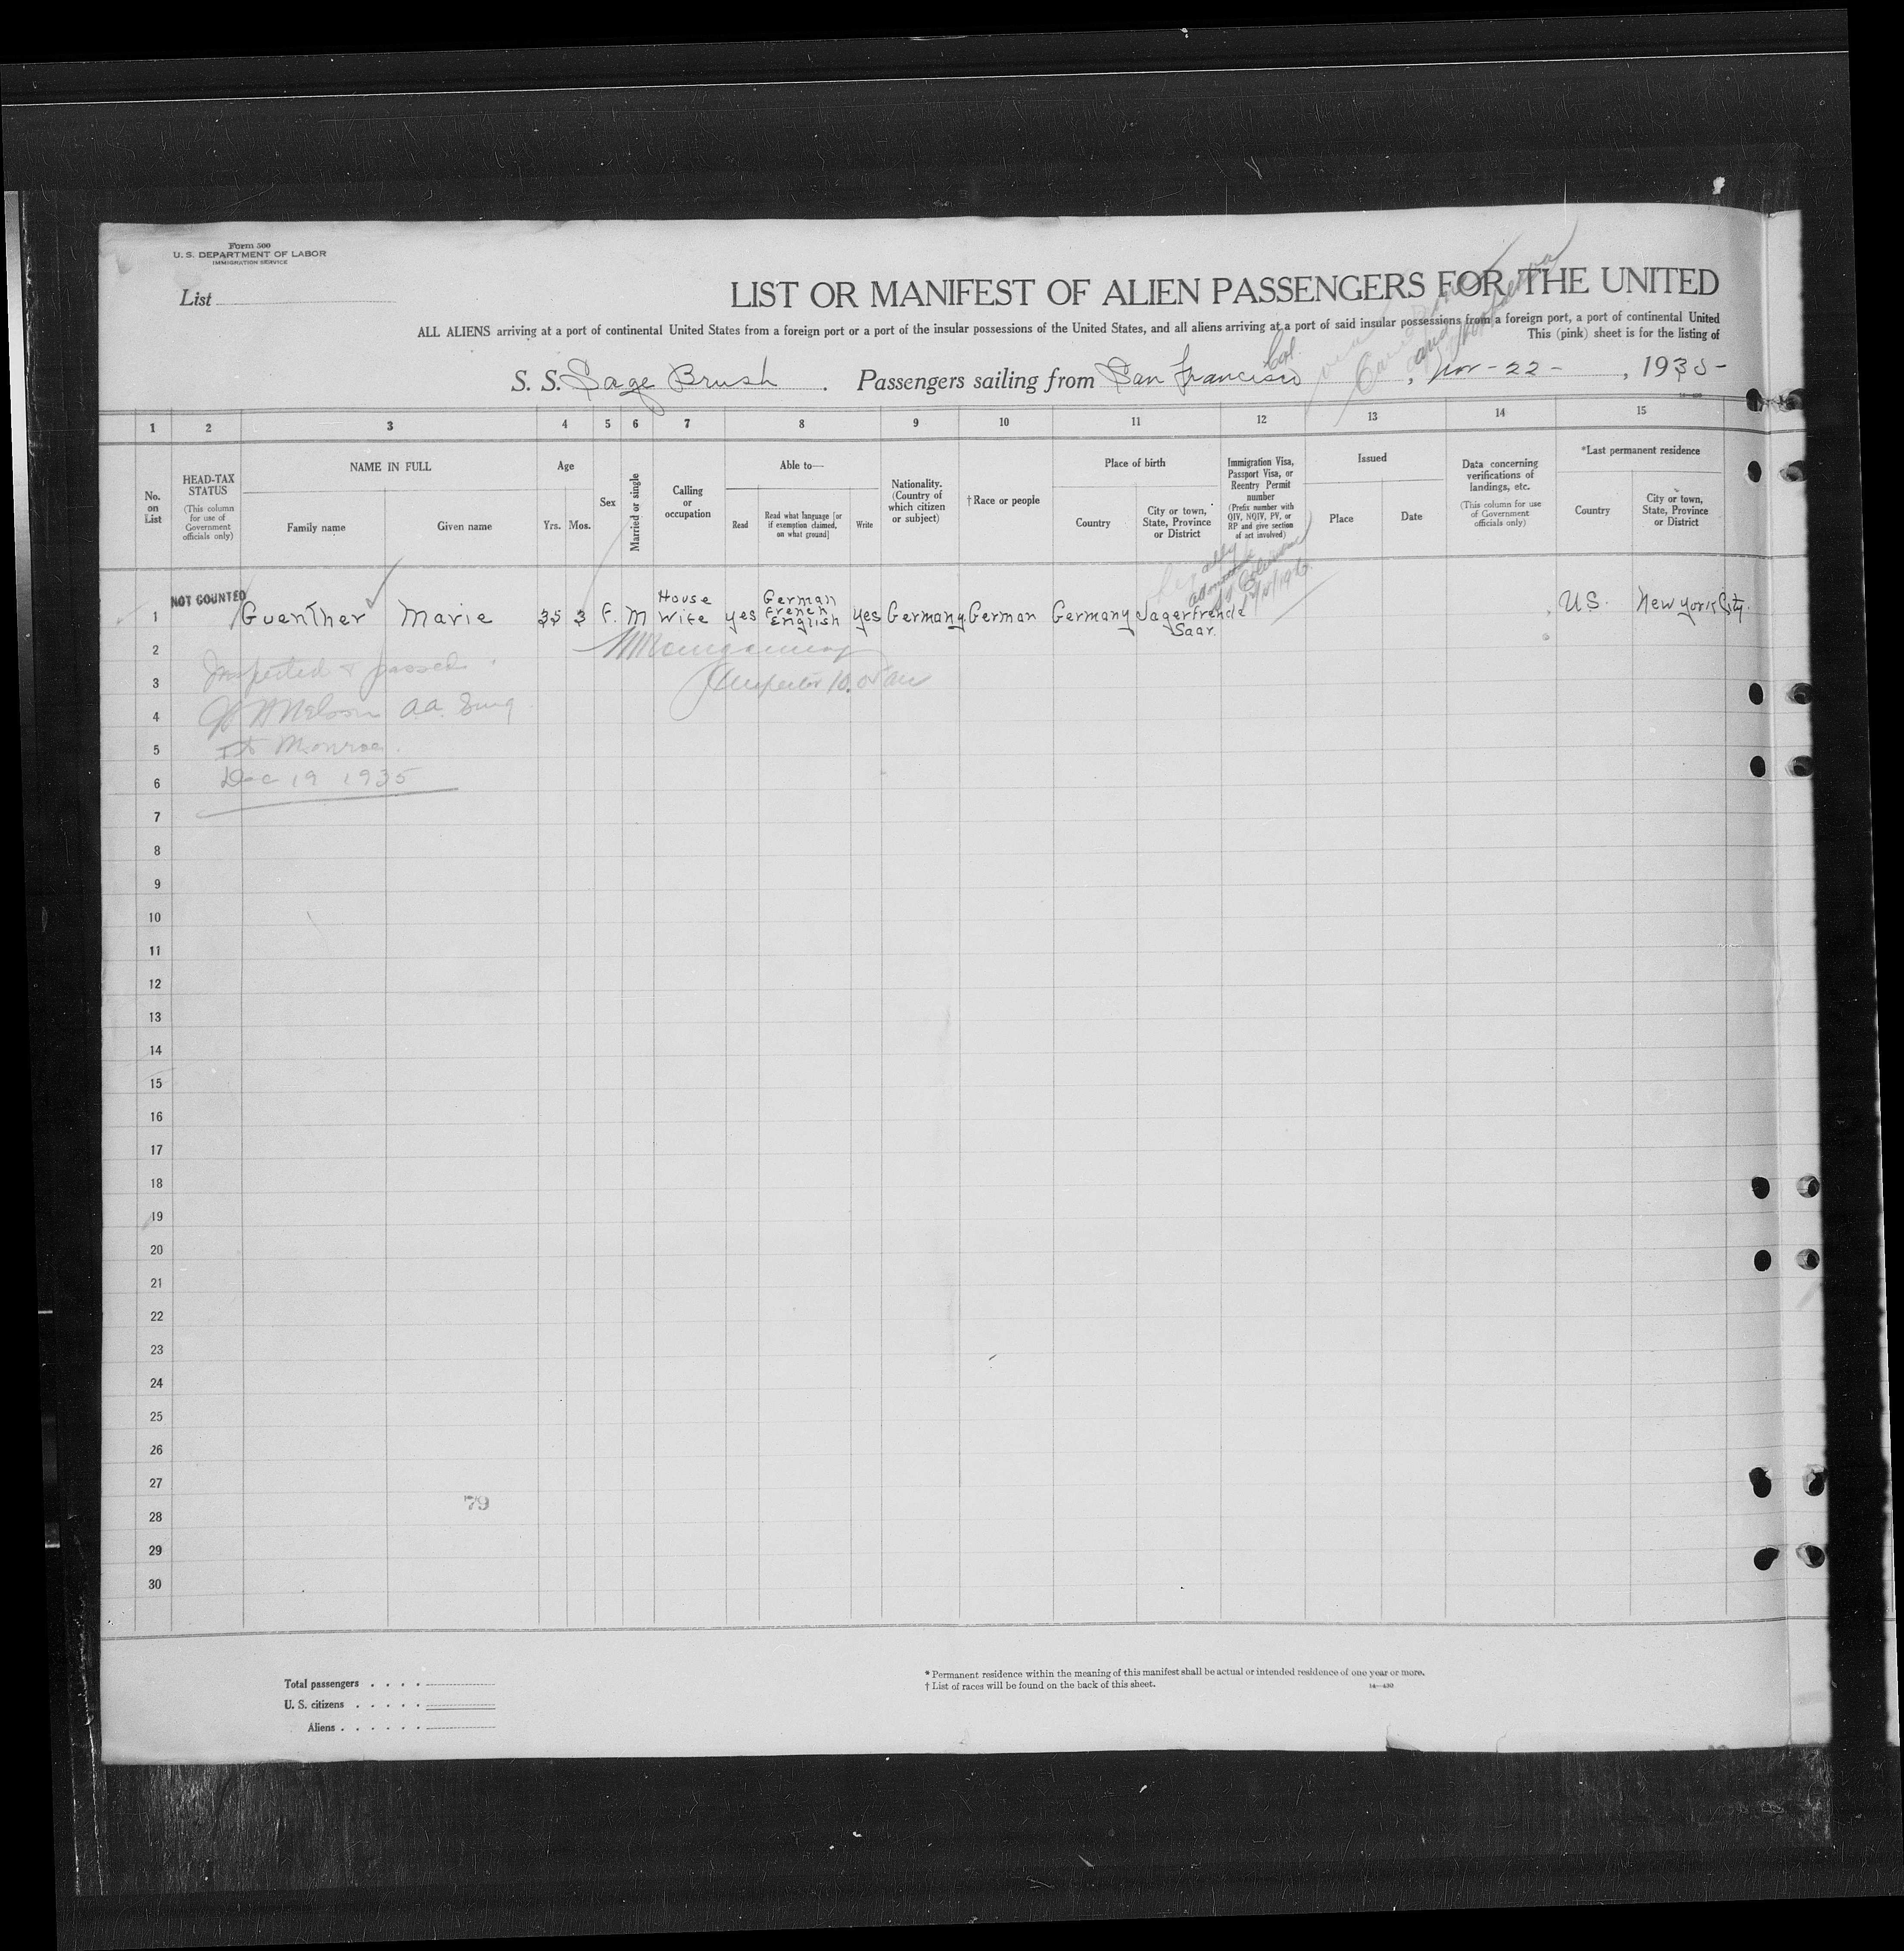 Form 500
U. S. DEPARTMENT OF LABOR
IMMIGRATION SERVICE
List
LIST OR MANIFEST OF ALIEN PASSENGERS FOR THE UNITED
ALL ALIENS arriving at a port of continental United States from a foreign port or a port of the insular possessions of the United States, and all aliens arriving at a port of said insular possessions from a foreign port, a port of continental United
This (pink) sheet is for the listing of
S. S. Sage Brush . Passengers sailing from San Francisco Cal. , Nov - 22 - , 1935 -
14—430
1 2 3 4 5 6 7 8 9 10 11 12 13 14 15
No. on List
HEAD-TAX STATUS
(This column for use of Government officials only)
NAME IN FULL
Family name
Given name
Age
Yrs. Mos.
Sex
Married or single
Calling or occupation
Able to—
Read
Read what language [or if exemption claimed, on what ground]
Write
Nationality. (Country of which citizen or subject)
†Race or people
Place of birth
Country
City or town, State, Province or District
Immigration Visa, Passport Visa, or Reentry Permit number
(Prefix number with QIV, NQIV, PV, or RP and give section of act involved)
Issued
Place
Date
Data concerning verifications of landings, etc.
(This column for use of Government officials only)
*Last permanent residence
Country
City or town, State, Province or District
NOT COUNTED
1 Guenther Marie 35 3 F. M House Wife yes German French English yes Germany German Germany Jagerfrende Saar. U.S. New York City.
2
Inspected & passed
3
Inspector
4
Nelson
5
Monroe
6
Dec 19 1935
7
8
9
10
11
12
13
14
15
16
17
18
19
20
21
22
23
24
25
26
27
79
28
29
30
Total passengers
U. S. citizens
Aliens
* Permanent residence within the meaning of this manifest shall be actual or intended residence of one year or more.
† List of races will be found on the back of this sheet.
14—430